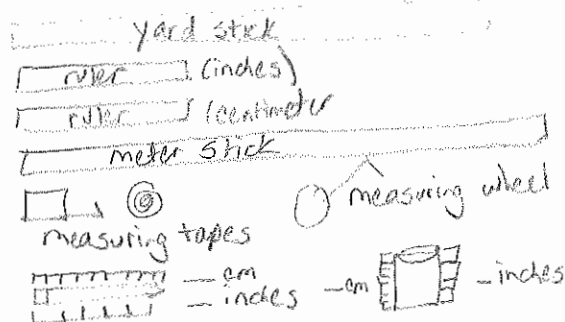 yard stick
ruler (inches)
ruler (centimeter
meter stick
measuring wheel
measuring tapes
cm
inches
cm
inches